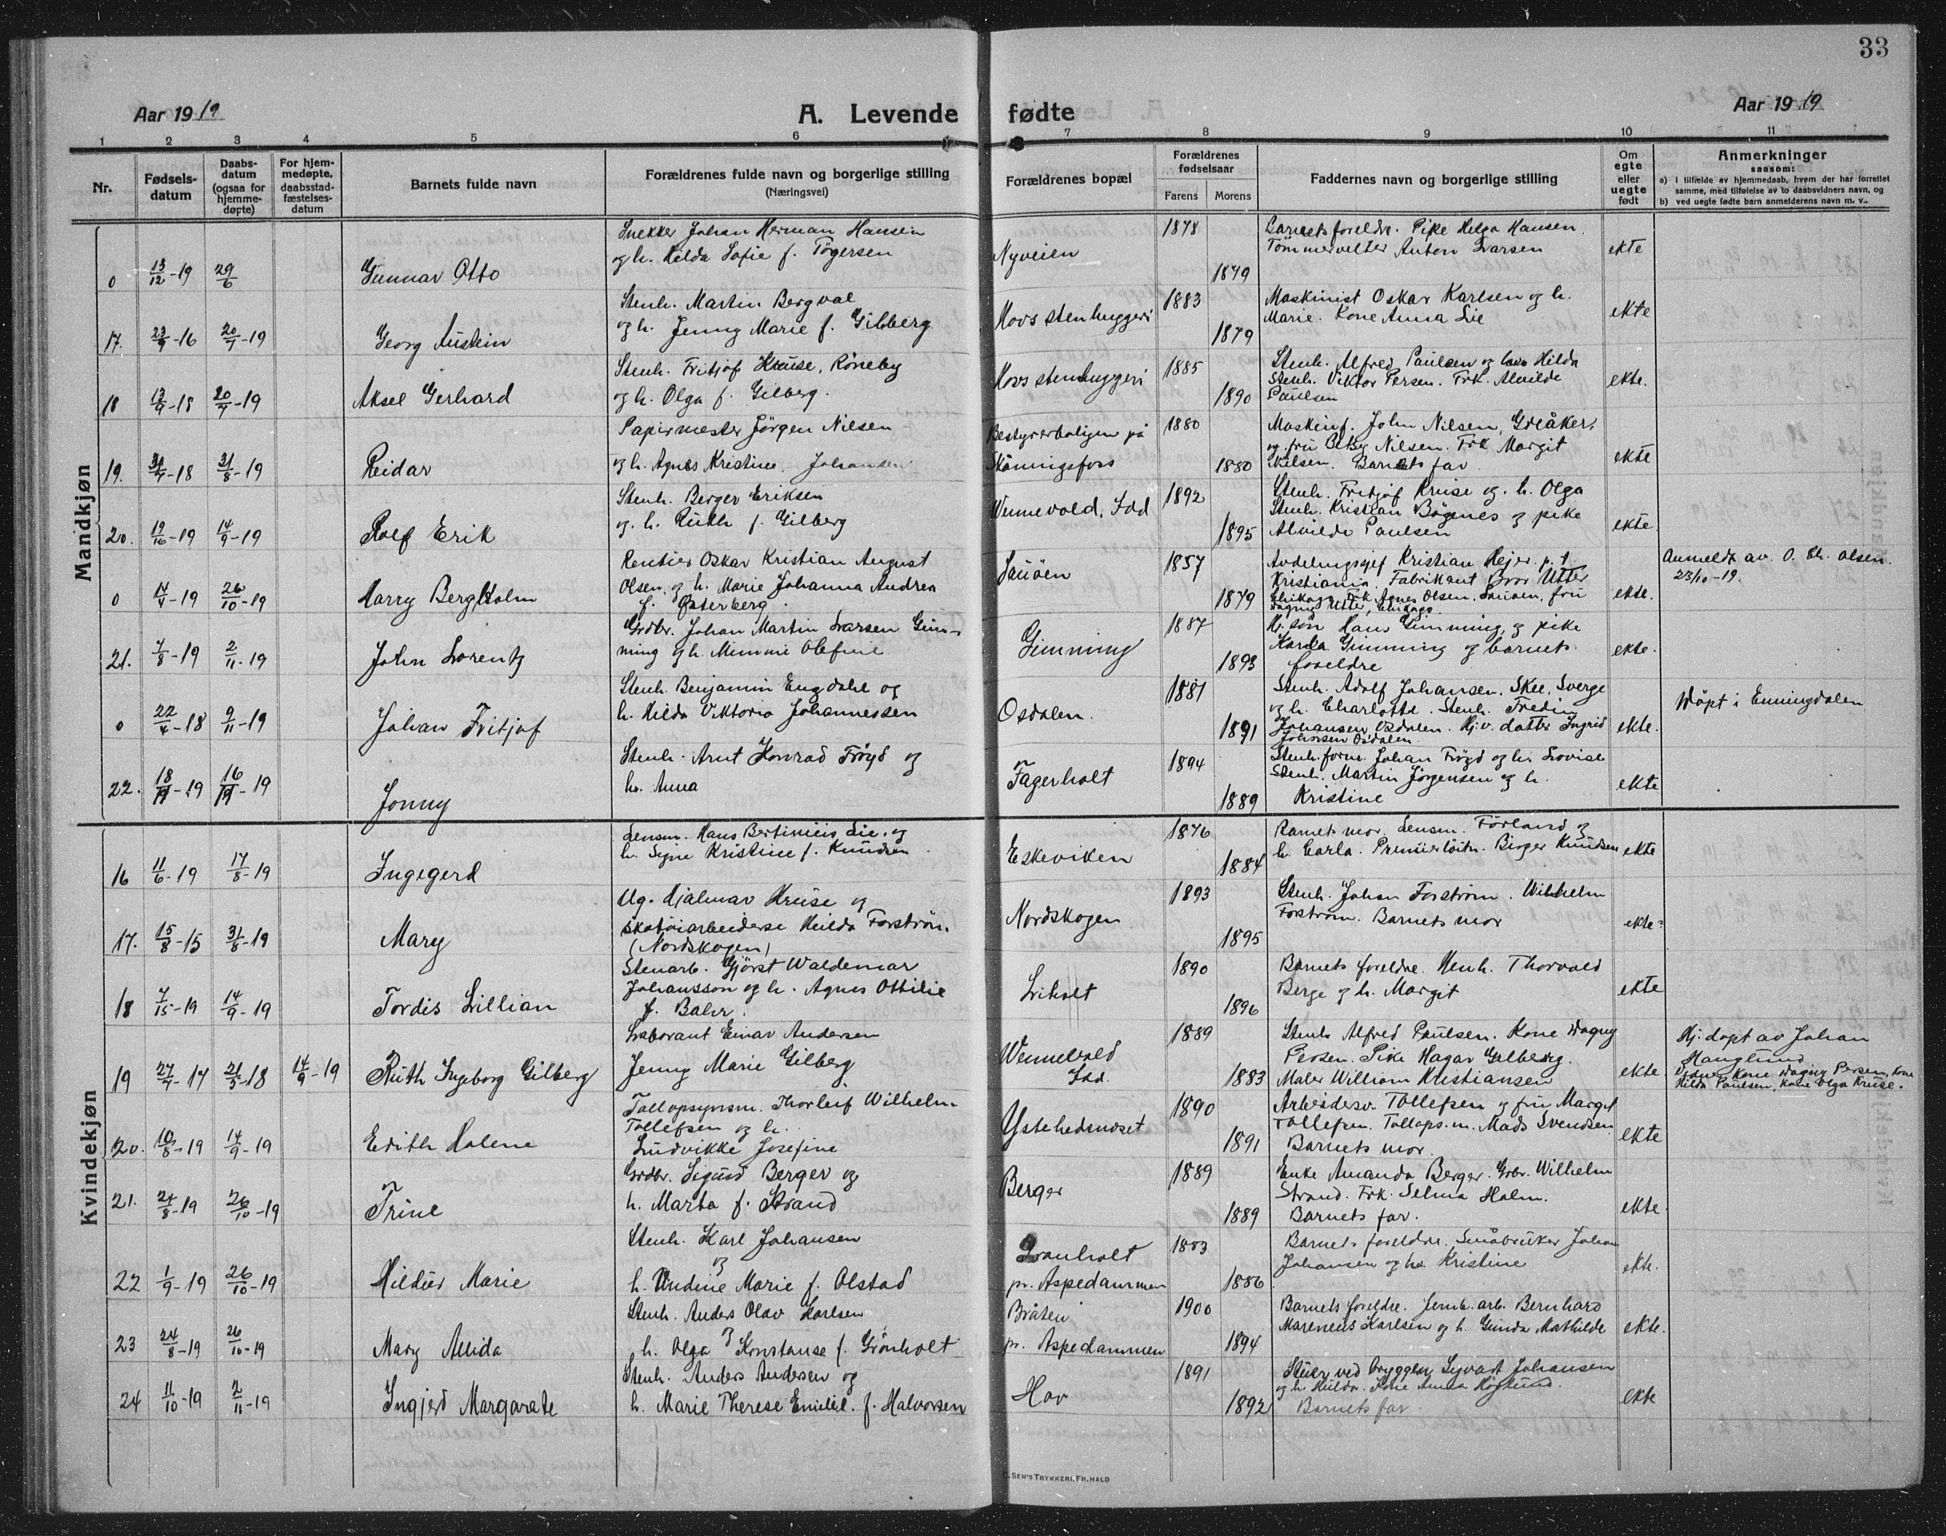 33
Aar 1919
A. Levende fødte
Aar 1919
1 2 3 4 5 6 7 8 9 10 11
Nr.
Fødsels-
datum
Daabs-
datum
(ogsaa for
hjemme-
døpte)
For hjem-
medøpte,
daabsstad-
fæstelses-
datum
Barnets fulde navn
Forældrenes fulde navn og borgerlige stilling
(Næringsvei)
Forældrenes bopæl
Forældrenes
fødselsaar
Farens Morens
Faddernes navn og borgerlige stilling
Om
egte
eller
uegte
født
Anmerkninger
saasom:
a) i tilfælde av hjemmedaab, hvem der har forrettet
samme, med tilføielse av to daabsvidners navn, og
b) ved uegte fødte barn anmelderens navn m. v..
Mandkjøn
0 13/12-19 29/6 Gunnar Otto
Snekker Johan Herman Hansen
og h. Hilda Sofie f. Tøgersen
Nyveien 1878 1879
Barnets foreldre. Pike Helga Hansen.
Tømmervelter Anton Larsen
ekte
17. 23/9-16 20/7-19 Georg Austein
Stenh. Martin Bergval
og h. Jenny Marie f. Gilberg.
Hovs stenhuggeri 1883 1879
Maskinist Oskar Karlsen og h.
Marie. Kone Anna Lie
ekte
18 13/9-18 20/7-19 Aksel Gerhard
Stenh. Fritjof Kruse, Røneby
og h. Olga f. Gilberg.
Hovs stenhuggeri 1885 1890
Stenh. Alfred Paulsen og Hilda
Stenh. Viktor Persen. Frk. Alvilde
Paulsen
ekte.
19. 31/7-18 31/8-19 Reidar
Papirmester Jørgen Nilsen
og h. Agnes Kristine, Johansen
Bestyrerboligen på
Skåningsfoss 1880 1880
Maskinf. John Nilsen, Greåker,
og fru Nilsen. Frk Margit
Nilsen. Barnets far.
ekte
20. 12/16-19 14/9-19 Rolf Erik
Stenh. Berger Eriksen
og. h. Ruth f. Gilberg
Wennevold, Idd 1892 1895
Stenh. Fritjof Kruse og. h. Olga
Stenh. Kristian Bøgenes og pike
Alvilde Paulsen
ekte
0 14/4-19 26/10-19 Harry Bergholm
Rentier Oskar Kristian August
Olsen, og h. Marie Johanna Andrea
f. Østerberg.
Sauøen 1857 1879
Avdelingssjef Kristian Hejer p.t
Kristiania, Fabrikant Bror Utter
Frk. Agnes Olsen, Sauøen, fru
Dagny Utter,
ekte.
Anmeldt av O. Olsen.
23/10-19.
21. 7/8-19 2/11-19 John Lorentz
Grdbr. Johan Martin Larsen Gim-
ming og h. Mimmi Olefine
Gimming 1887 1893
Hj. søn Hans Gimming, og pike
Karda Gimming og barnets
foreldre
ekte.
0 22/4-18 9/11-19 Johan Fritjof
Stenh. Benjamin Engdahl og
h. Hilda Viktoria Johannessen
Osdalen. 1881 1891
Stenh. Adolf Johansen, Skee, Sverge
og h. Charlotte. Stenh. Fredin
Johansen Osdalen. Hj.v. datter Ingrid
Johansen Osdalen.
ekte.
Døpt i Enningdalen
22. 18/9-19 16/11-19 Jonny
Stenh. Arnt Konrad Frøyd og
h. Anna
Fagerholt 1894 1889
Stenh.form. Johan Frøyd og h. Lovise
Stenh. Martin Jørgensen og h.
Kristine
ekte
Kvindekjøn
16 11/6-19 17/8-19 Ingegerd
Lensm. Hans Bertinius Lie. og
h. Signe Kristine f. Knudsen.
Eskeviken 1876 1884
Barnets mor. Lensm. Førland og
h. Carla. Premierløitn. Birger Knudsen
ekte
17. 15/8-15 31/8-19 Mary
Ug. Hjalmar Kruse og
skotøiarbeiderske Hilda Forstrøm.
(Nordskogen)
Nordskogen 1893 1895
Stenh. Johan Forstrøm. Wilhelm
Forstrøm. Barnets mor
ekte
18 7/15-19 14/9-19 Tordis Lillian
Stenarb. Gjørst Waldemar
Johansson og h. Agnes Ottilie
f. Bahr.
Liholt 1890 1896
Barnets foreldre. Stenh. Thorvald
Berge og h. Margit
ekte
19 27/7-17 21/5-18 14/9-19 Ruth Ingeborg Gilberg
Laborant Einar Andersen
Jenny Marie Gilberg
Wennevold
Idd 1889 1883
Stenh Alfred Paulsen. Kone Dagny
Persen. Pike Hagar Gilberg.
Maler William Kristiansen
ekte
Hj. døpt av Johan
Hauglund
Vidner kone Dagny Persen, kone
Hilda Paulsen, kone Olga Kruse.
20. 10/8-19 14/9-19 Edith Halene
Tollopsynsm. Thorleif Wilhelm
Tollefsen og h.
Ludvikke Josefine
Ystehedsneset 1890 1891
Arbeidersv. Tollefsen og fru Margit
Tollefsen. Tollops.m. Mads Svendsen
Barnets mor.
ekte
21. 24/8-19 26/10-19 Trine
Grdbr. Sigurd Berger og
h. Marta f. Strand
Berger 1889 1889
Enke Amanda Berger. Grbr. Wilhelm
Strand. Frk. Selma Holm.
Barnets far.
ekte.
22 1/9-19 26/10-19 Hildur Marie
Stenh. Karl Johansen
og
h. Undine Marie f. Olstad
Granholt
pr. Aspedammen 1883 1886
Barnets foreldre. Småbruker Johan
Johansen og h Kristine
ekte.
23 24/8-19 26/10-19 Mary Alida
Stenh. Anders Olav Karlsen
og
h. Olga Konstanse f. Grønholt
Bråten
pr. Aspedammen 1900 1894
Barnets foreldre. Jernb. arb. Bernhard
Mareneus Karlsen og h. Gunda Mathilde
ekte.
24 11/10-19 2/11-19 Ingjerd Margarate
Stenh. Anders Andersen og
h. Marie Therese Emilie. f. Halvorsen
Hov 1891 1892
Stuer ved bryggen Sigvart Johansen
og h Hulda. Kone Anna Høglund.
Barnets far.
ekte
SEM'S TRYKKERI, FR. HALD